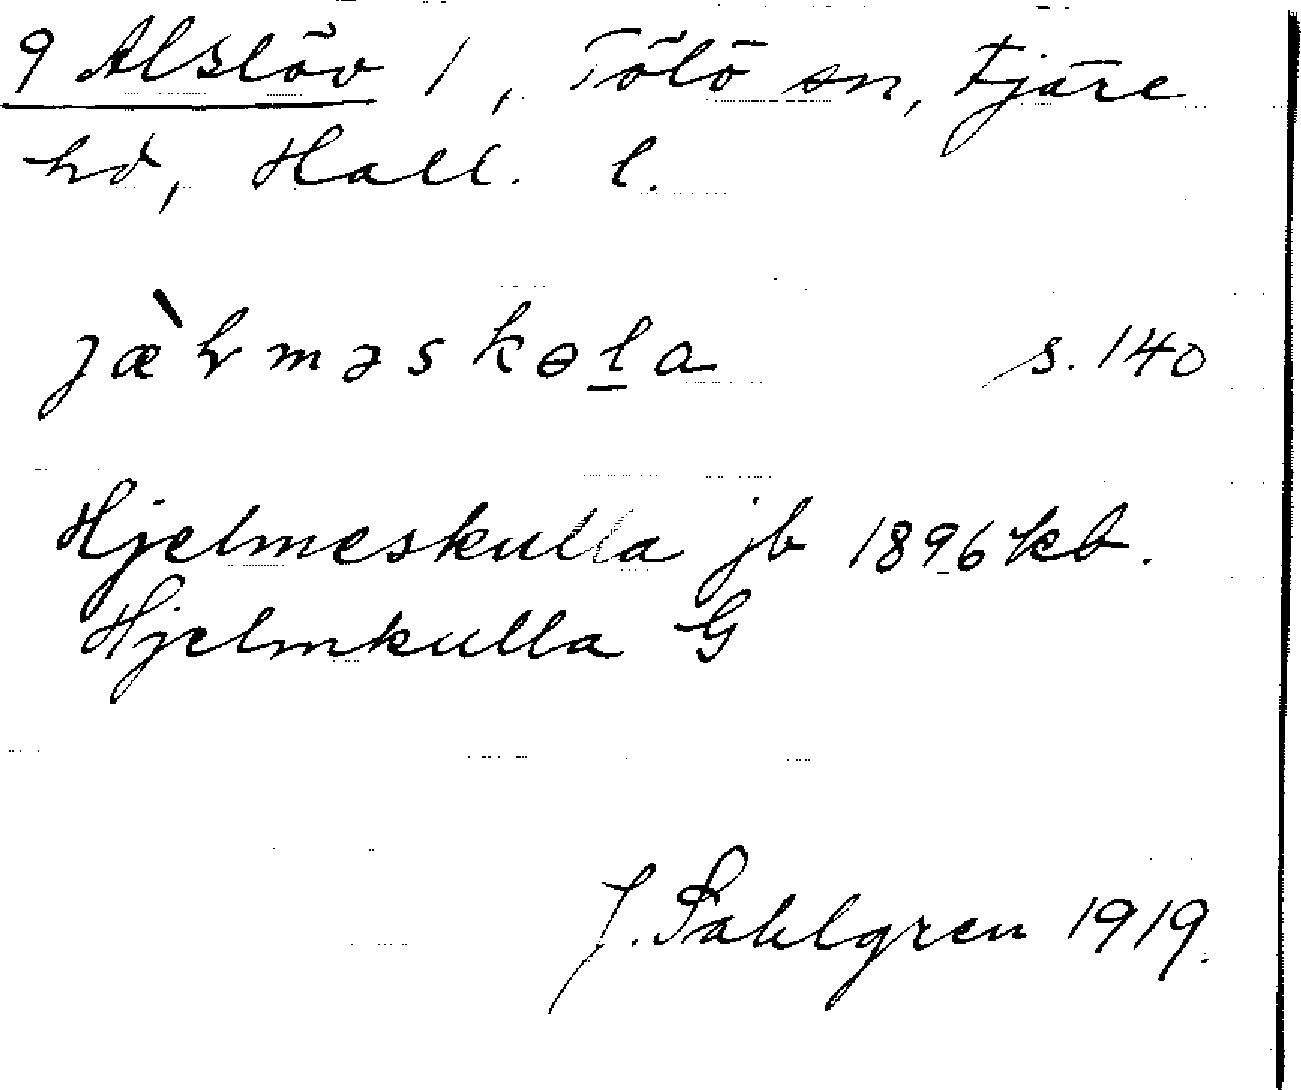 9 Alslöv 1, Tölö sn, Fjäre
hd, Hall. l.
jæ̀lməskɵl̲a s. 140
Hjelmeskulla jb 1896 kb.
Hjelmkulla G
J. Sahlgren 1919.